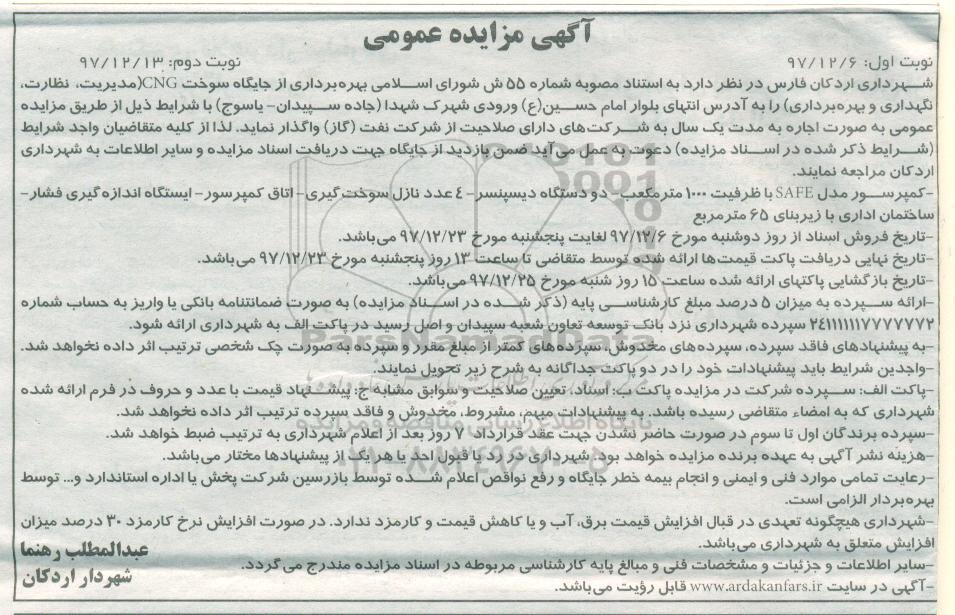 آگهی مزایده عمومی
نوبت اول: ۹۷/۱۲/۶
نوبت دوم: ۹۷/۱۲/۱۳
شهرداری اردکان فارس در نظر دارد به استناد مصوبه شماره ۵۵ ش شورای اسلامی بهره‌برداری از جایگاه سوخت CNG(مدیریت، نظارت،
نگهداری و بهره‌برداری) را به آدرس انتهای بلوار امام حسین(ع) ورودی شهرک شهدا (جاده سپیدان- یاسوج) با شرایط ذیل از طریق مزایده
عمومی به صورت اجاره به مدت یک سال به شرکت‌های دارای صلاحیت از شرکت نفت (گاز) واگذار نماید. لذا از کلیه متقاضیان واجد شرایط
(شرایط ذکر شده در اسناد مزایده) دعوت به عمل می‌آید ضمن بازدید از جایگاه جهت دریافت اسناد مزایده و سایر اطلاعات به شهرداری
اردکان مراجعه نمایند.
-کمپرسور مدل SAFE با ظرفیت ۱۰۰۰ مترمکعب- دو دستگاه دیسپنسر- ۴ عدد نازل سوخت گیری- اتاق کمپرسور- ایستگاه اندازه گیری فشار-
ساختمان اداری با زیربنای ۶۵ مترمربع
-تاریخ فروش اسناد از روز دوشنبه مورخ ۹۷/۱۲/۶ لغایت پنجشنبه مورخ ۹۷/۱۲/۲۳ می‌باشد.
-تاریخ نهایی دریافت پاکت قیمت‌ها ارائه شده توسط متقاضی تا ساعت ۱۳ روز پنجشنبه مورخ ۹۷/۱۲/۲۳ می‌باشد.
-تاریخ بازگشایی پاکتهای ارائه شده ساعت ۱۵ روز شنبه مورخ ۹۷/۱۲/۲۵ می‌باشد.
-ارائه سپرده به میزان ۵ درصد مبلغ کارشناسی پایه (ذکر شده در اسناد مزایده) به صورت ضمانتنامه بانکی یا واریز به حساب شماره
سپرده شهرداری نزد بانک توسعه تعاون شعبه سپیدان و اصل رسید در پاکت الف به شهرداری ارائه شود.
-به پیشنهادهای فاقد سپرده، سپرده‌های مخدوش، سپرده‌های کمتر از مبلغ مقرر و سپرده به صورت چک شخصی ترتیب اثر داده نخواهد شد.
-واجدین شرایط باید پیشنهادات خود را در دو پاکت جداگانه به شرح زیر تحویل نمایند.
-پاکت الف: سپرده شرکت در مزایده پاکت ب: اسناد، تعیین صلاحیت و سوابق مشابه ج: پیشنهاد قیمت با عدد و حروف در فرم ارائه شده
شهرداری که به امضاء متقاضی رسیده باشد. به پیشنهادات مبهم، مشروط، مخدوش و فاقد سپرده ترتیب اثر داده نخواهد شد.
-سپرده برندگان اول تا سوم در صورت حاضر نشدن جهت عقد قرارداد ۷ روز بعد از اعلام شهرداری به ترتیب ضبط خواهد شد.
-هزینه نشر آگهی به عهده برنده مزایده خواهد بود. شهرداری در رد یا قبول احد یا هر یک از پیشنهادها مختار می‌باشد.
-رعایت تمامی موارد فنی و ایمنی و انجام بیمه خطر جایگاه و رفع نواقص اعلام شده توسط بازرسین شرکت پخش یا اداره استاندارد و... توسط
بهره‌بردار الزامی است.
-شهرداری هیچگونه تعهدی در قبال افزایش قیمت برق، آب و یا کاهش قیمت و کارمزد ندارد. در صورت افزایش نرخ کارمزد ۳۰ درصد میزان
افزایش متعلق به شهرداری می‌باشد.
-سایر اطلاعات و جزئیات و مشخصات فنی و مبالغ پایه کارشناسی مربوطه در اسناد مزایده مندرج می‌گردد.
-آگهی در سایت www.ardakanfars.ir قابل رؤیت می‌باشد.
عبدالمطلب رهنما
شهردار اردکان
ParsNamadData
پایگاه اطلاع رسانی مناقصه و مزایده
۰۲۱-۸۸۳۴۹۶۷۰-۵